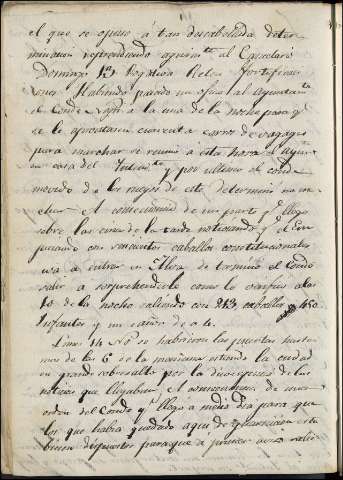 el que se opuso á tan descabellada deter
minacion reprendiendo agriam.te al
Domingo 13
nes. Habiendo pasado un oficio al Ayuntam.to
el Conde á la una de la noche para q.e
se le aprontasen cuarenta carros de vagages
para marchar se reunió á esta hora el Ayun
en casa del y por ultimo el conde
movido de los ruegos de este determinó no
A consecuencia de un parte q.e llegó
sobre las cinco de la tarde noticiando q.e el Em
pecinado con seiscientos caballos constitucionales
iva á entrar en determinó el Conde
salir á sorprehenderle como lo verificó á las
10 de la noche saliendo con 213 caballos, y 450
Infantes y un cañon de á 4.
Lunes 14 N.o se habrieron las puertas hasta
mas de las 6 de la mañana estando la ciudad
en grande sobresalto por la divergencia de las
noticias que llegaban. A consecuencia de una
orden del Conde q.e llegó á medio dia para que
los que habia quedado aqui de guarnicion estu
biesen dispuestos para que á primer aviso